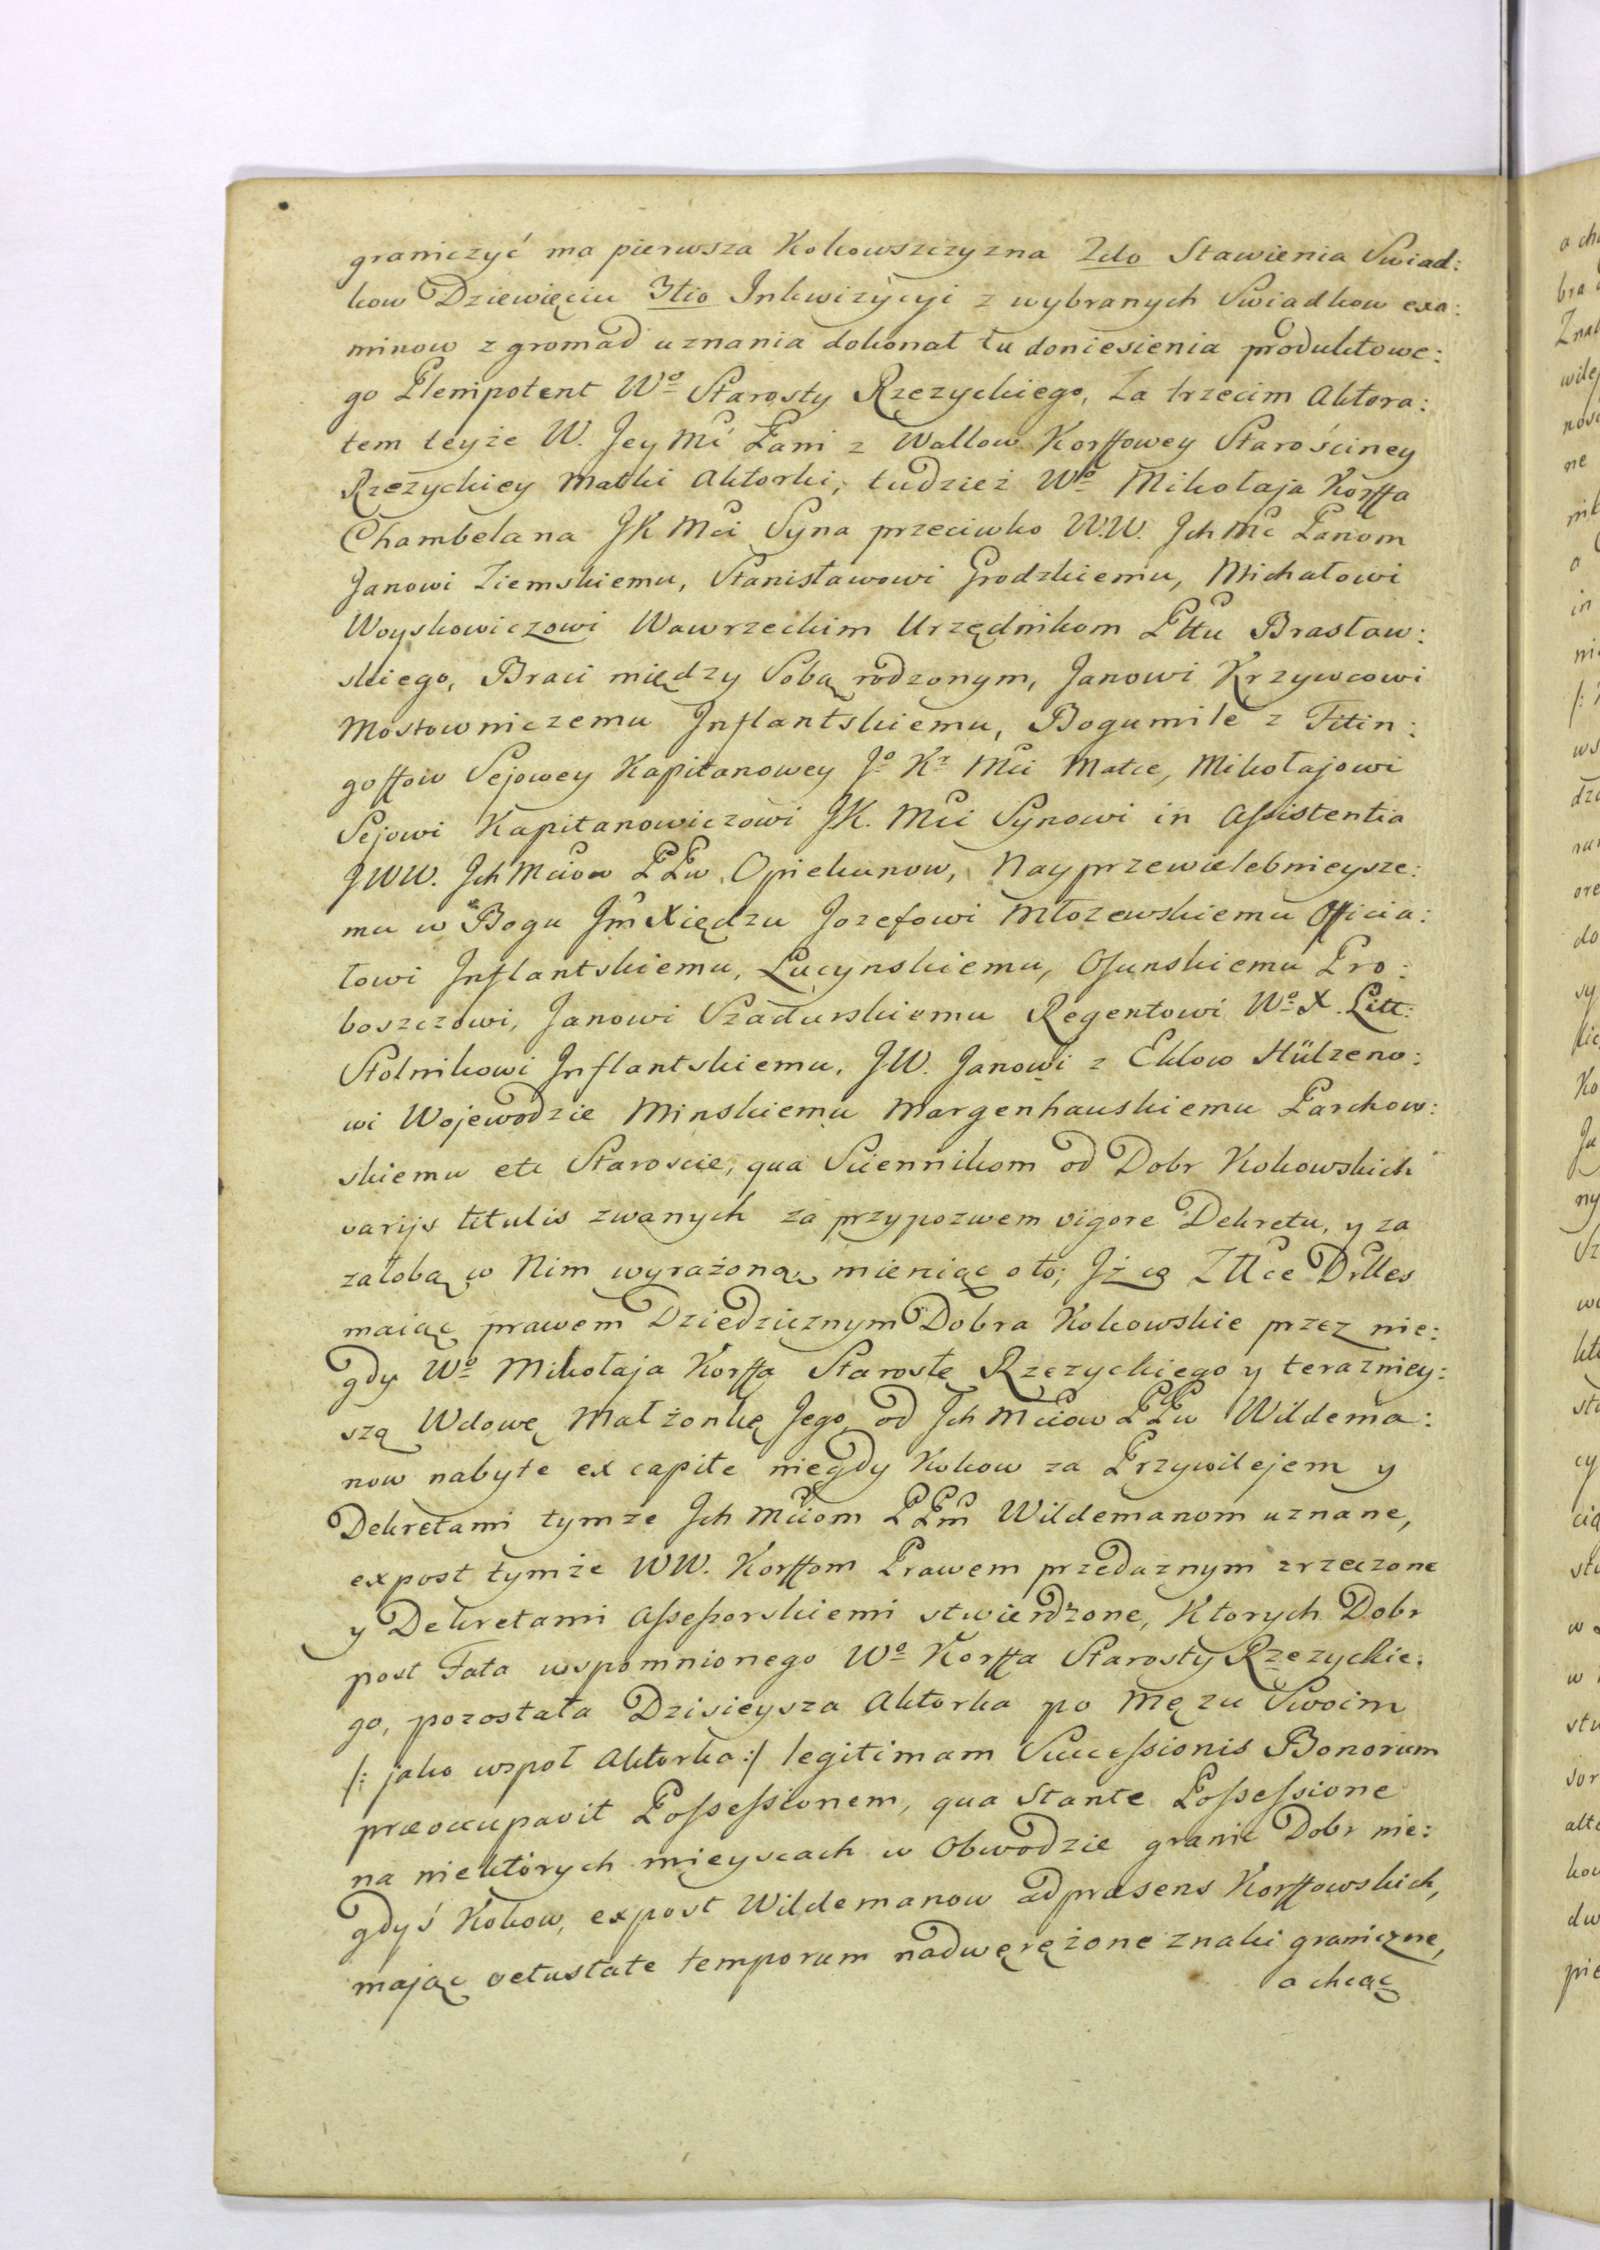 graniczyć ma pierwsza Kokowszczyzna 2do Stawienia Swiad:
kow Dziewięciu 3tio Inkwizycyi z wybranych Swiadkow exa:
minow z gromad uznania dokonał tu doniesienia produktowe:
go Plenipotent Wo Starosty Rzezyckiego, Za trzecim Aktora:
tem teyże W. Jey Mć Pani z Wallow Korffowey Starościney
Rzeżyckiey Matki Aktorki, tudzież Wo Mikołaja Korffa
Chambelana JK Mci Syna przeciwko W.W. Ich Mc Panom
Janowi Ziemskiemu, Stanisławowi Grodzkiemu, Michałowi
Woyskowiczowi Wawrzeckim Urzędnikom Pttu Brasław:
skiego, Braci między Sobą rodzonym, Janowi Krzywcowi
Mostowniczemu Inflantskiemu, Bogumile z Fitin:
goffow Sejowey Kapitanowey Jo Kr Mci Matce, Mikołajowi
Sejowi Kapitanowiczowi JK. Mci Synowi in Assistentia
JWW. Ich Mciow PPw Opiekunow, Nayprzewielebnieysze:
mu w Bogu Jm Xiędzu Jozefowi Młozewskiemu Officia:
łowi Inflantskiemu, Lucynskiemu, Osunskiemu Pro:
boszczowi, Janowi Szadurskiemu Regentowi Wo X. Litt:
Stolnikowi Inflantskiemu, JW. Janowi z Eklow Hülzeno:
wi Wojewodzie Minskiemu Margenhauskiemu Parchow:
skiemu etc Staroscie, qua Sciennikom od Dobr Kokowskich
varijs titulis zwanych za przypozwem vigore Dekretu, y za
załobą w Nim wyrażoną mieniąc oto; Iż cą Żttce Drlles
maiąc prawem Dziedzicznym Dobra Kokowskie przez nie:
gdy Wo Mikołaja Korffa Starostę Rzezyckiego y terazniey:
szą Wdowę Małżonkę Jego od Ich Mciow PPw Wildema:
now nabyte ex capite niegdy Kokow za Przywilejem y
Dekretami tymże Ich Mciom PPm Wildemanom uznane,
expost tymże WW. Korffom Prawem przedażnym zrzeczone
y Dekretami Assessorskiemi stwierdzone, Ktorych Dobr
post Fata wspomnionego Wo Korffa Starosty Rzezyckie:
go, pozostała Dzisieysza Aktorka po Mężu Swoim
/: jako wspoł Aktorka :/ legitimam Successionis Bonorum
præoccupavit Possessionem, qua stante Possessione
na niektórych mieyscach w Obwodzie granic Dobr nie:
gdyś Kokow, expost Wildemanow ad præsens Korffowskich,
mając vetustate temporum nadwerężone znaki graniczne,
a chcąc